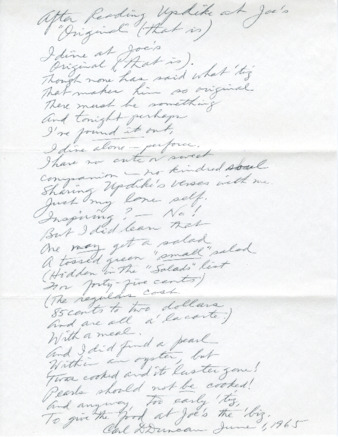 After Reading Updike at Joe's
"Original" (that is)
I dine at Joe's
Original (that is).
Though none has said what 'tis
That makes him so original
There must be something
And tonight perhaps
I've found it out,
I dine alone — perforce.
I have no cute or sweet
companion — no kindred soul
Sharing Updike's verses with me.
Just my lone self.
Inspiring? — No!
But I did learn that
One may get a salad
A tossed green "small" salad
(Hidden in the "Salads" list
For forty-five cents)
(The regulars cost
85 cents to two dollars
And are all a' la carte.)
With a meal.
And I did find a pearl
Within an oyster, but
Twas cooked and its luster gone!
Pearls should not be cooked!
And anyway, too early 'tis,
To give the good at Joe's the 'biz.
Carl D. Duncan June 1, 1965